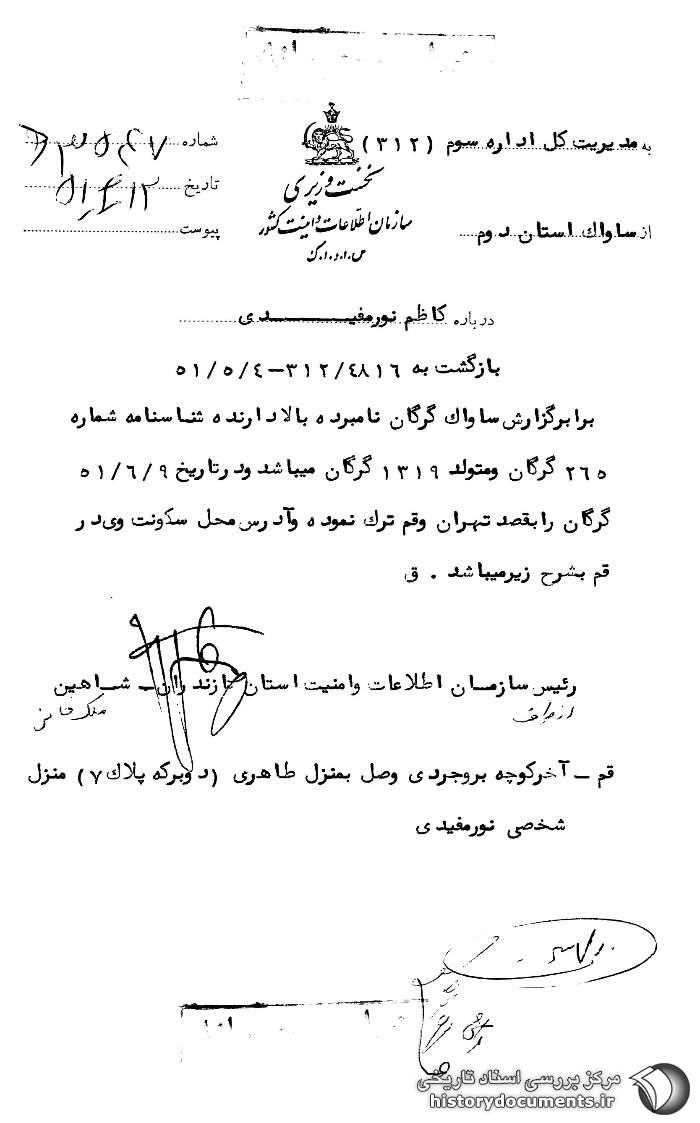 به مدیریت کل اداره سوم (۳۱۲)
از ساواک استان دوم
نخست وزیری
سازمان اطلاعات و امنیت کشور
س.ا.و.ا.ک
شماره
تاریخ ۵۱/۶/۱۲
پیوست
درباره کاظم نورمفیدی
بازگشت به ۳۱۲/٤۸۱٦-۵۱/۵/٤
برابر گزارش ساواک گرگان نامبرده بالا دارنده شناسنامه شماره
۲٦۵ گرگان و متولد ۱۳۱۹ گرگان میباشد و در تاریخ ۵۱/٦/۹
گرگان را بقصد تهران و قم ترک نموده و آدرس محل سکونت وی در
قم بشرح زیر میباشد . ق
رئیس سازمان اطلاعات و امنیت استان مازندران - شاهین
از طرف
قم - آخر کوچه بروجردی وصل بمنزل طاهری (دوبرکه پلاک ۷) منزل
شخصی نورمفیدی
مرکز بررسی اسناد تاریخی
historydocuments.ir